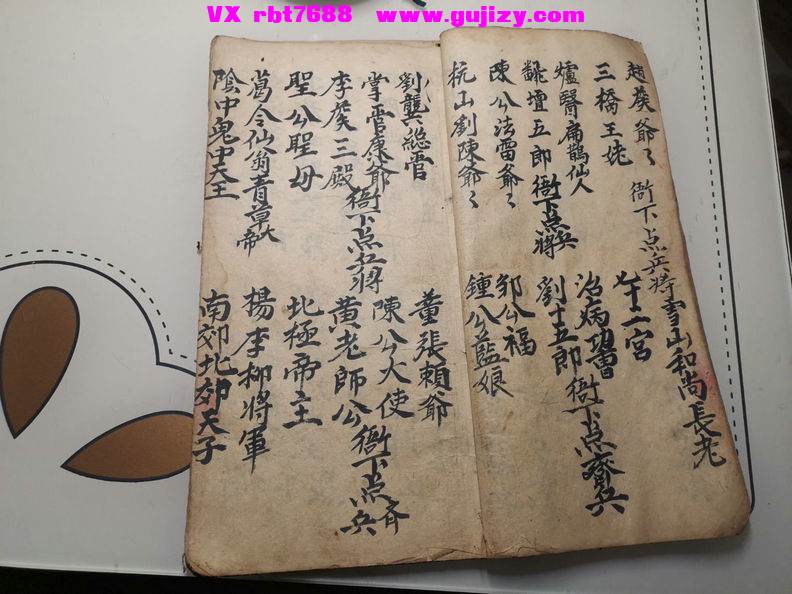 VX rbt7688 www.gujizy.com
趙侯爺〻 衙下点兵将 雪山和尚長老
三橋王姥 七十二宮
爐醫扁鵲仙人 治病功曹
壇五郎 衙下点兵将 劉十五郎 衙下点齊兵
陳公法雷爺〻 邹公福
杭山劉陳爺〻 鍾公藍娘
劉龔総管 董張賴爺
掌管康爺 衙下点兵將 陳公大使
李侯三殿 黄老師公 衙下点齐兵
聖公聖母 北極帝主
葛令仙翁青草大帝 楊李柳將軍
陰中鬼中天王 南郊北郊天子